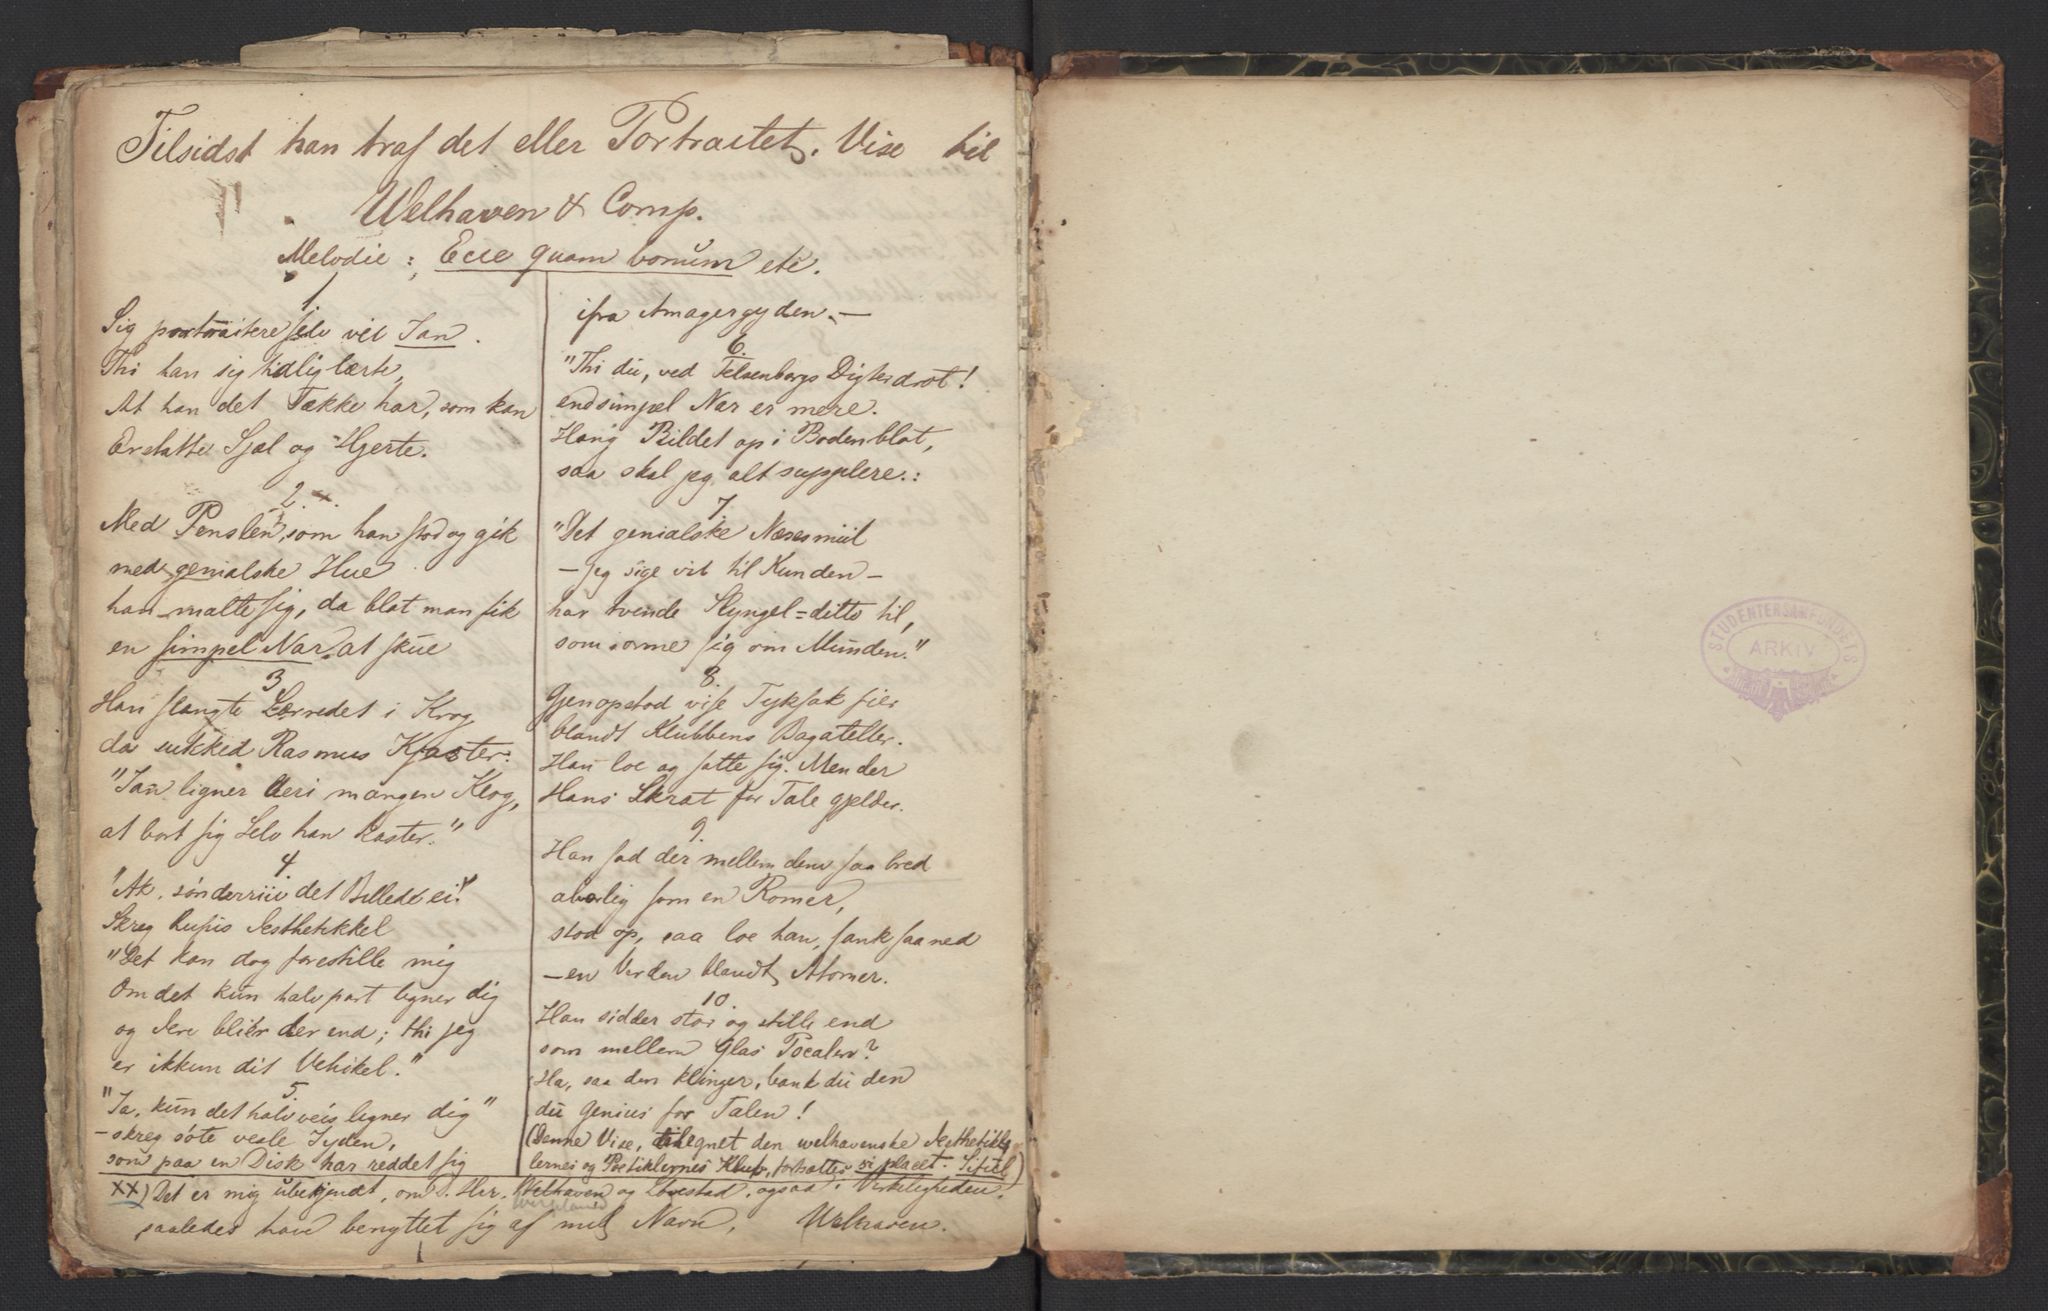 Tilsidst han traf det eller Portraitet. Vise til
Welhaven & Comp.
Melodie: Ecce quam bonum etc.
1.
Sig portraitere selv vil Jan.
Thi han sig tidlig lærte,
At han det Tække har, som kan
Erstatte Sjæl og Hjerte.
2.
Med Penslen, som han stod og gik
med genialske Hue
han malte sig, da blot man fik
en simpel Nar at skue
3
Han slængte Lærredet i Krog
da sukked Rasmus Kjaster:
"Jan ligner deri mangen Klog,
at bort sig Selv han kaster."
4.
"Ak, sønderriv det Billede ei!"
Skreg Æsthetikkel
"Det kan dog forestille mig
Om det kun halv part ligner dig
og Ære bliver der end; thi jeg
er ikkun dit Vehikel."
5.
"Ja, kun det halvveis ligner dig"
- skreg søte vesle Jyden,
som paa en Disk har reddet sig
ifra Amagergyden. —
6.
"Thi du, ved Felsenborgs Digterdrot!
end simpel Nar er mere.
Hæng Bildet op i Boden blot,
saa skal jeg alt supplere.:
7.
"Det genialske Næsesmiil
- jeg sige vil til Kunden -
har tvende Slyngel=ditto til,
som orme sig om Munden."
8.
Gjenopstod vise Tyksak fier
blandt Klubbens Bagateller.
Han loe og satte sig. Men der
Hans Skrat for Tale gjelder.
9.
Han sad der mellem dem saa bred
alvorlig som en Romer,
stod op, saa loe han, sank saa ned
- en Verden blandt Atomer.
10.
Han sidder stor og stille end
som mellem Glas Pocalen?
Ha, saa den klinger, bank du den
du Genius for Talen!
(Denne Vise, tilegnet den welhavenske Æsthetik
lernes og Poetiklernes Klub, fortsættes si placet. Siful)
XX) Det er mig ubekjendt, om S. Hr. Welhaven og Stoestad, ogsaa i Virkeligheden,
saaledes have benyttet sig af mit Navn, Welhaven.
STUDENTERSAMFUNDETS
ARKIV